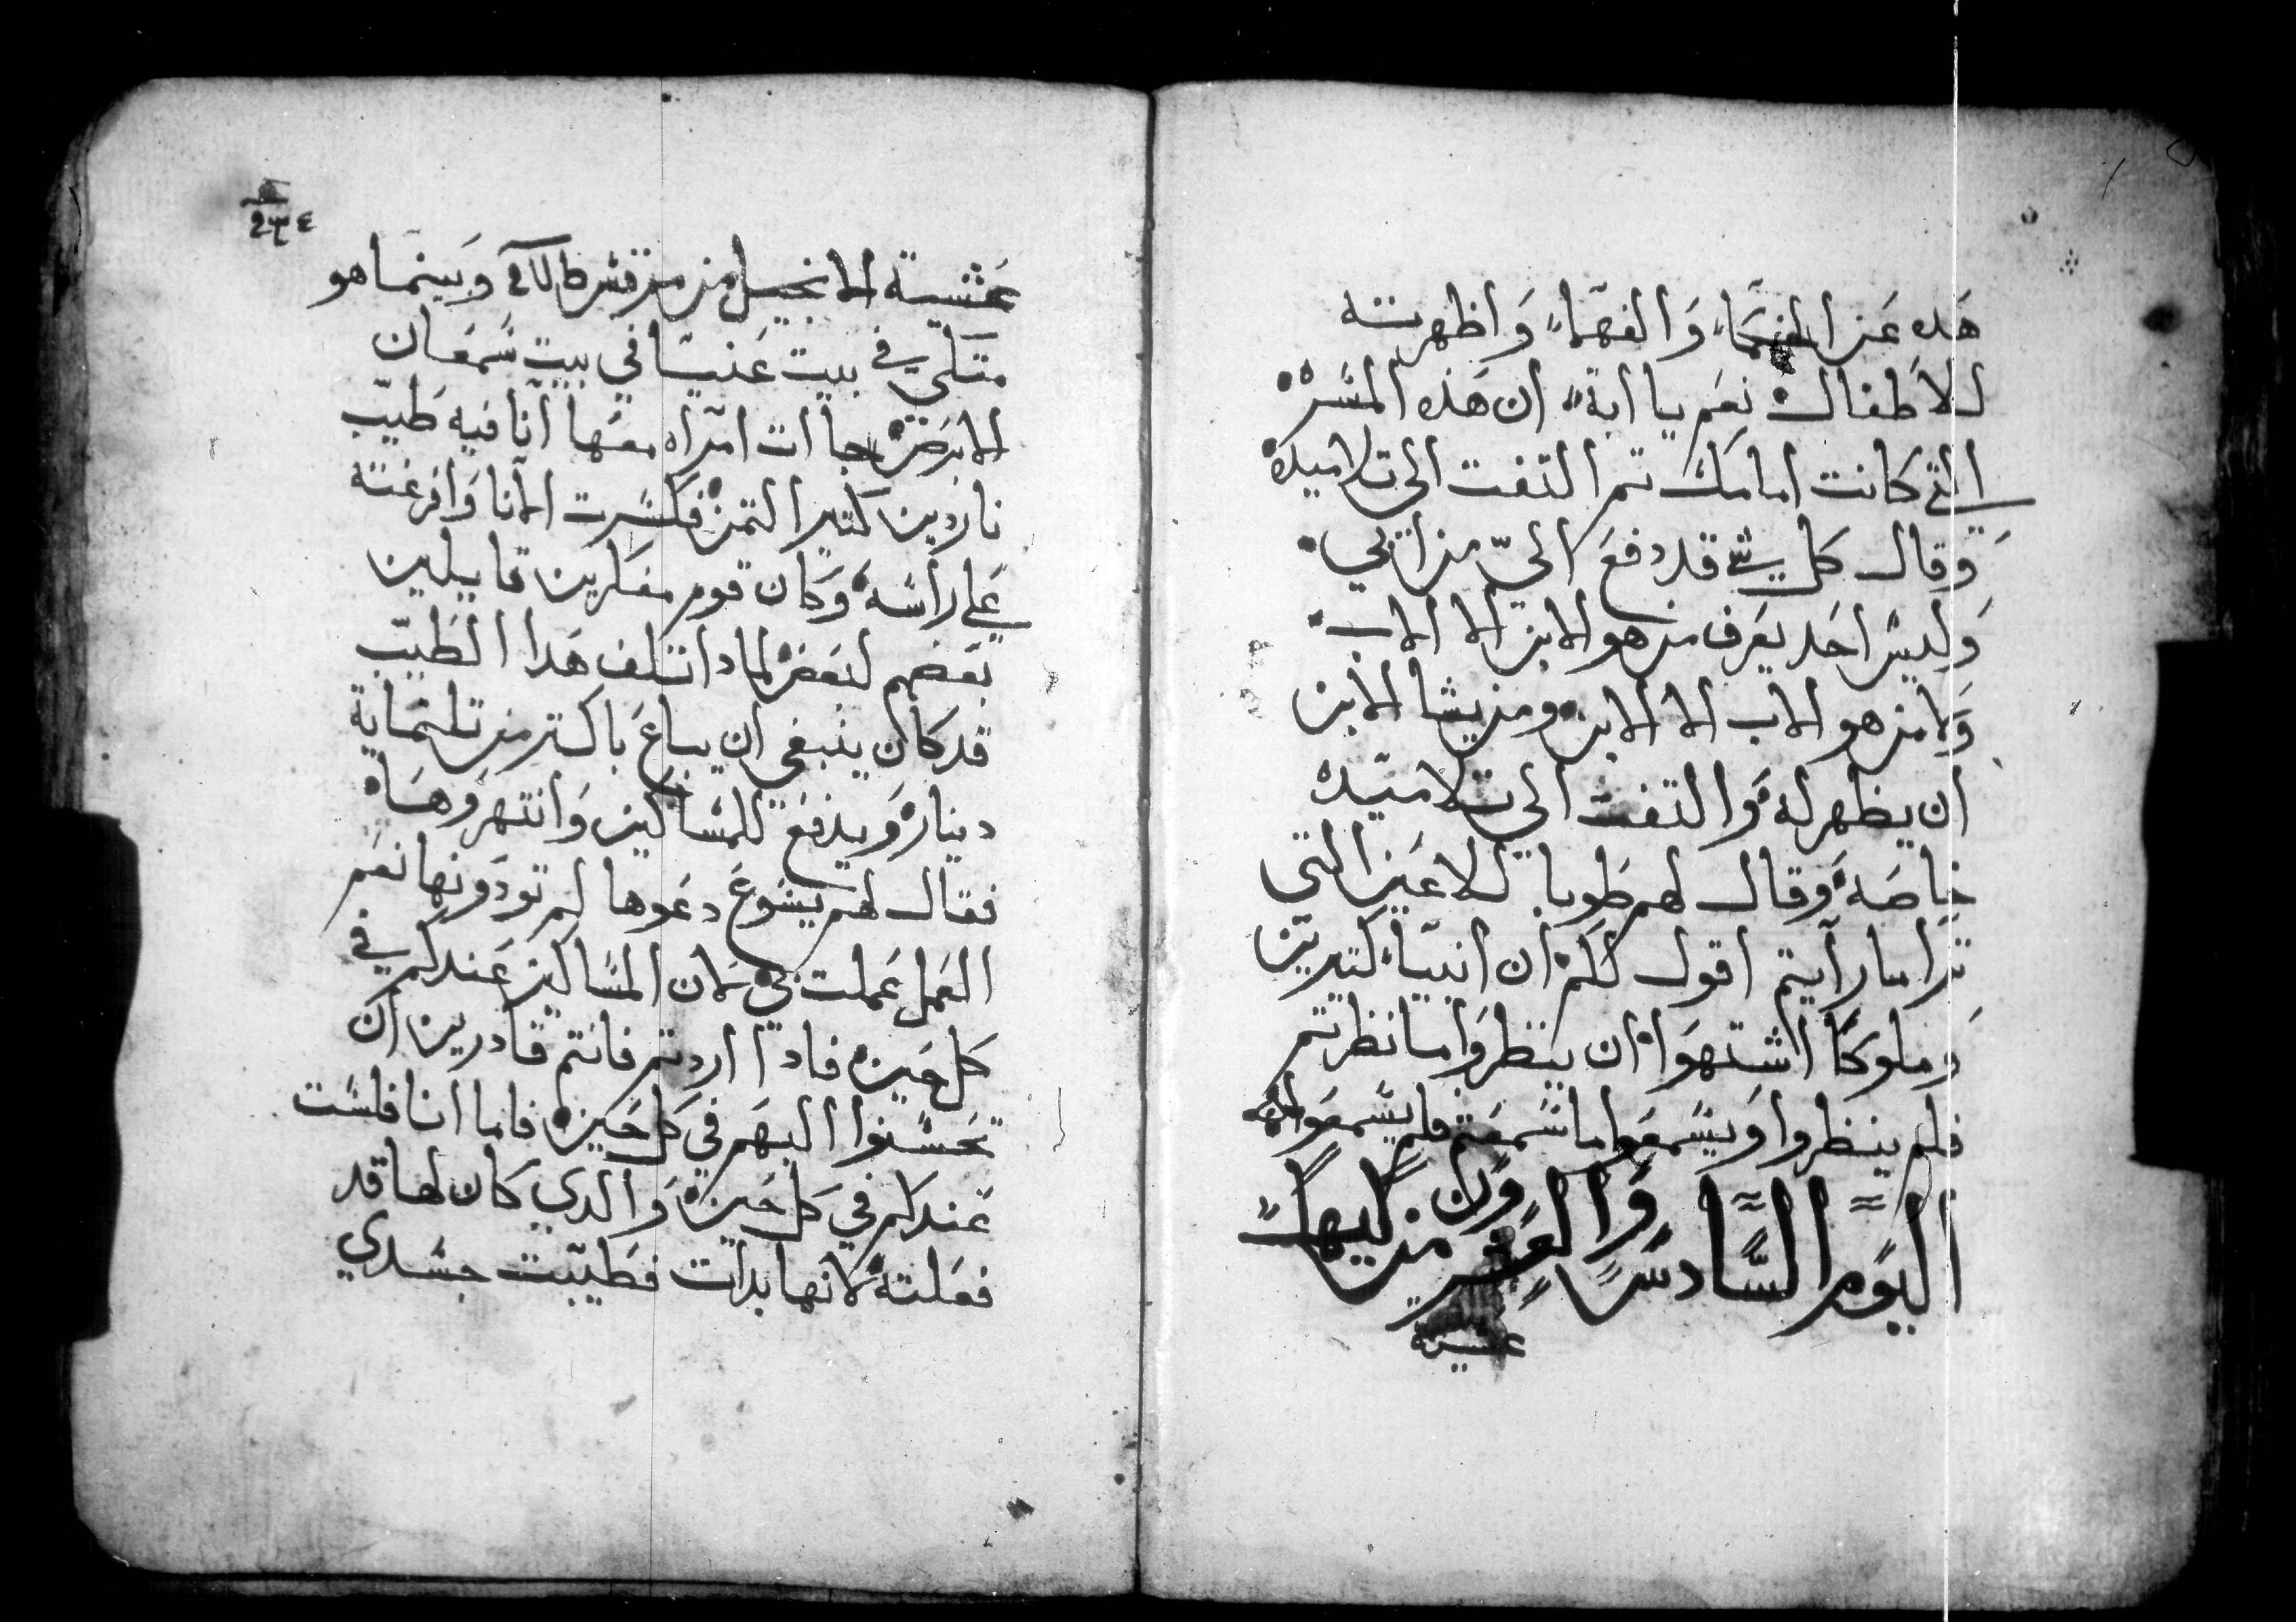 هَده عَن الفهمَاء وَالفهَماء وَاظهرته
للاَطفال نعَم يا ابة ان هَذه المسَره
التي كانت امامك تم التفت الى تلاميده
وَقال كل شي قد دفعَ اليّ من ابي
وَليسَ احَد يعَرف من هو الابن الا الاب
وَلا من هو الاب الا الابن ومن يشا الابن
ان يظهر له وَالتفت الي تلاميَده
خاصَة وَقال لهم طَوبا للاعَين التي
ترا ما رآيتم اقول لكم ان انبيَاء كتيرين
وَملوكاً اشتهوَا ان ينَظروَا ما نظرتم
فلم ينظروا وَيسَمعَوا ما سَمعَتم فلم يسَمعَوا
اليَوَم السَّادسَ وَالعَشرون من كيهك
عشية
٢٣٤
عَشية الانجيل من مرقسَ وَبينما هو
متكيَ في بيت عَنيَا في بيت سَمعَان
الابرَص جاات امرَاه معَها آنا فيه طَيّب
ناردين كتير التمن فكسَرت الانا وَافرغته
عَلي رأسَه وَكان قوم مفكرين قايلين
بعَضهم لبعَض لمادا تتلف هَدا الطَيّب
قد كان ينبغي ان يباعَ باكتر من تلتمَاية
دينار وَيدفعَ للمسَاكين وَانتهروَهَا
فقال لهم يسَوعَ دعَوها لم تودَونها نعَم
العَمل عَملت بي لان المسَاكين عَندكم في
كل حَين فادا اردتم فانتم قادرين ان
تحَسَنوا اليهَم في كل حَين فاما انا فلسَت
عَندكم في كل حَين وَالدي كان لها قد
فعَلته لانها بدات فطَيّبت جسَدي